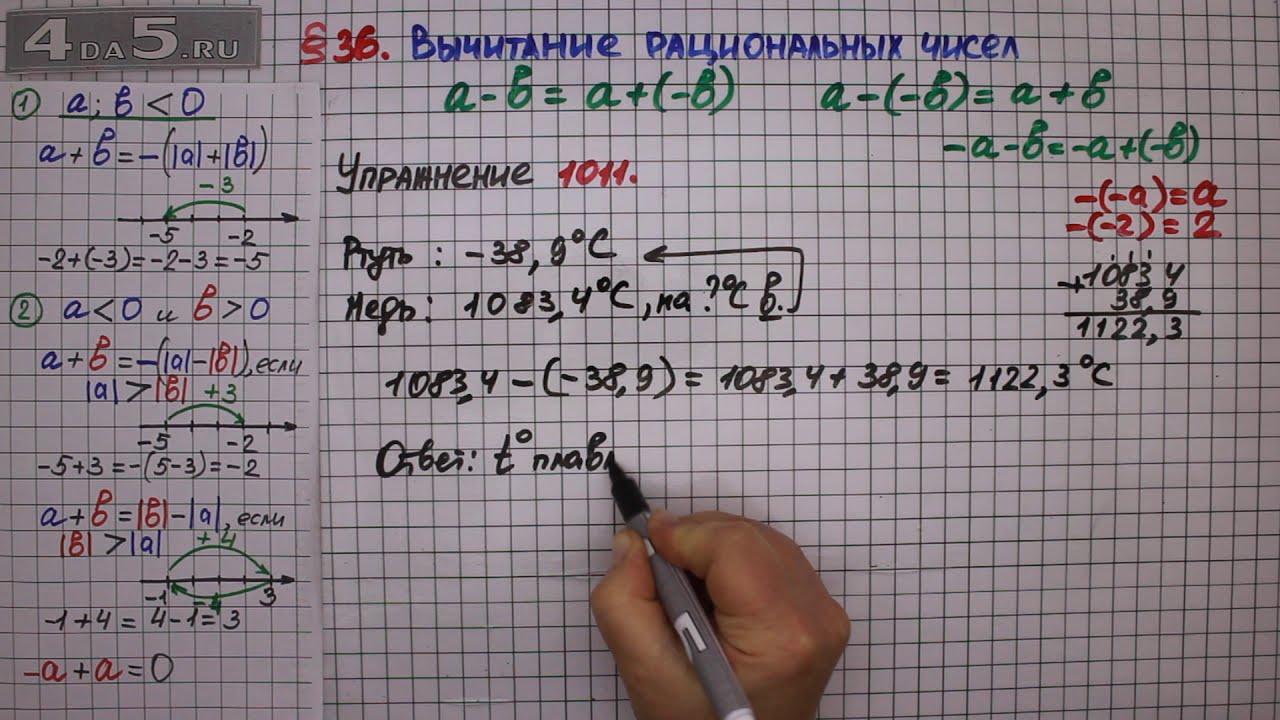 4DA5.RU
§ 36. Вычитание рациональных чисел
a - в = a + (-в)   a - (-в) = a + в
-a - в = -a + (-в)
-(-a) = a
-(-2) = 2
① a; в < 0
a + в = -(|a| + |в|)
-3
-5 -2
-2 + (-3) = -2 - 3 = -5
② a < 0 и в > 0
a + в = -(|a| - |в|), если
|a| > |в| +3
-5 -2
-5 + 3 = -(5 - 3) = -2
a + в = |в| - |a|, если
|в| > |a| +4
-1 -4 3
-1 + 4 = 4 - 1 = 3
-a + a = 0
Упражнение 1011.
Ртуть : -38,9°C
Медь : 1083,4°C, на ?°C в.
1083,4 - (-38,9) = 1083,4 + 38,9 = 1122,3°C
+1083 4
38,9
1122,3
Ответ: t° плавл